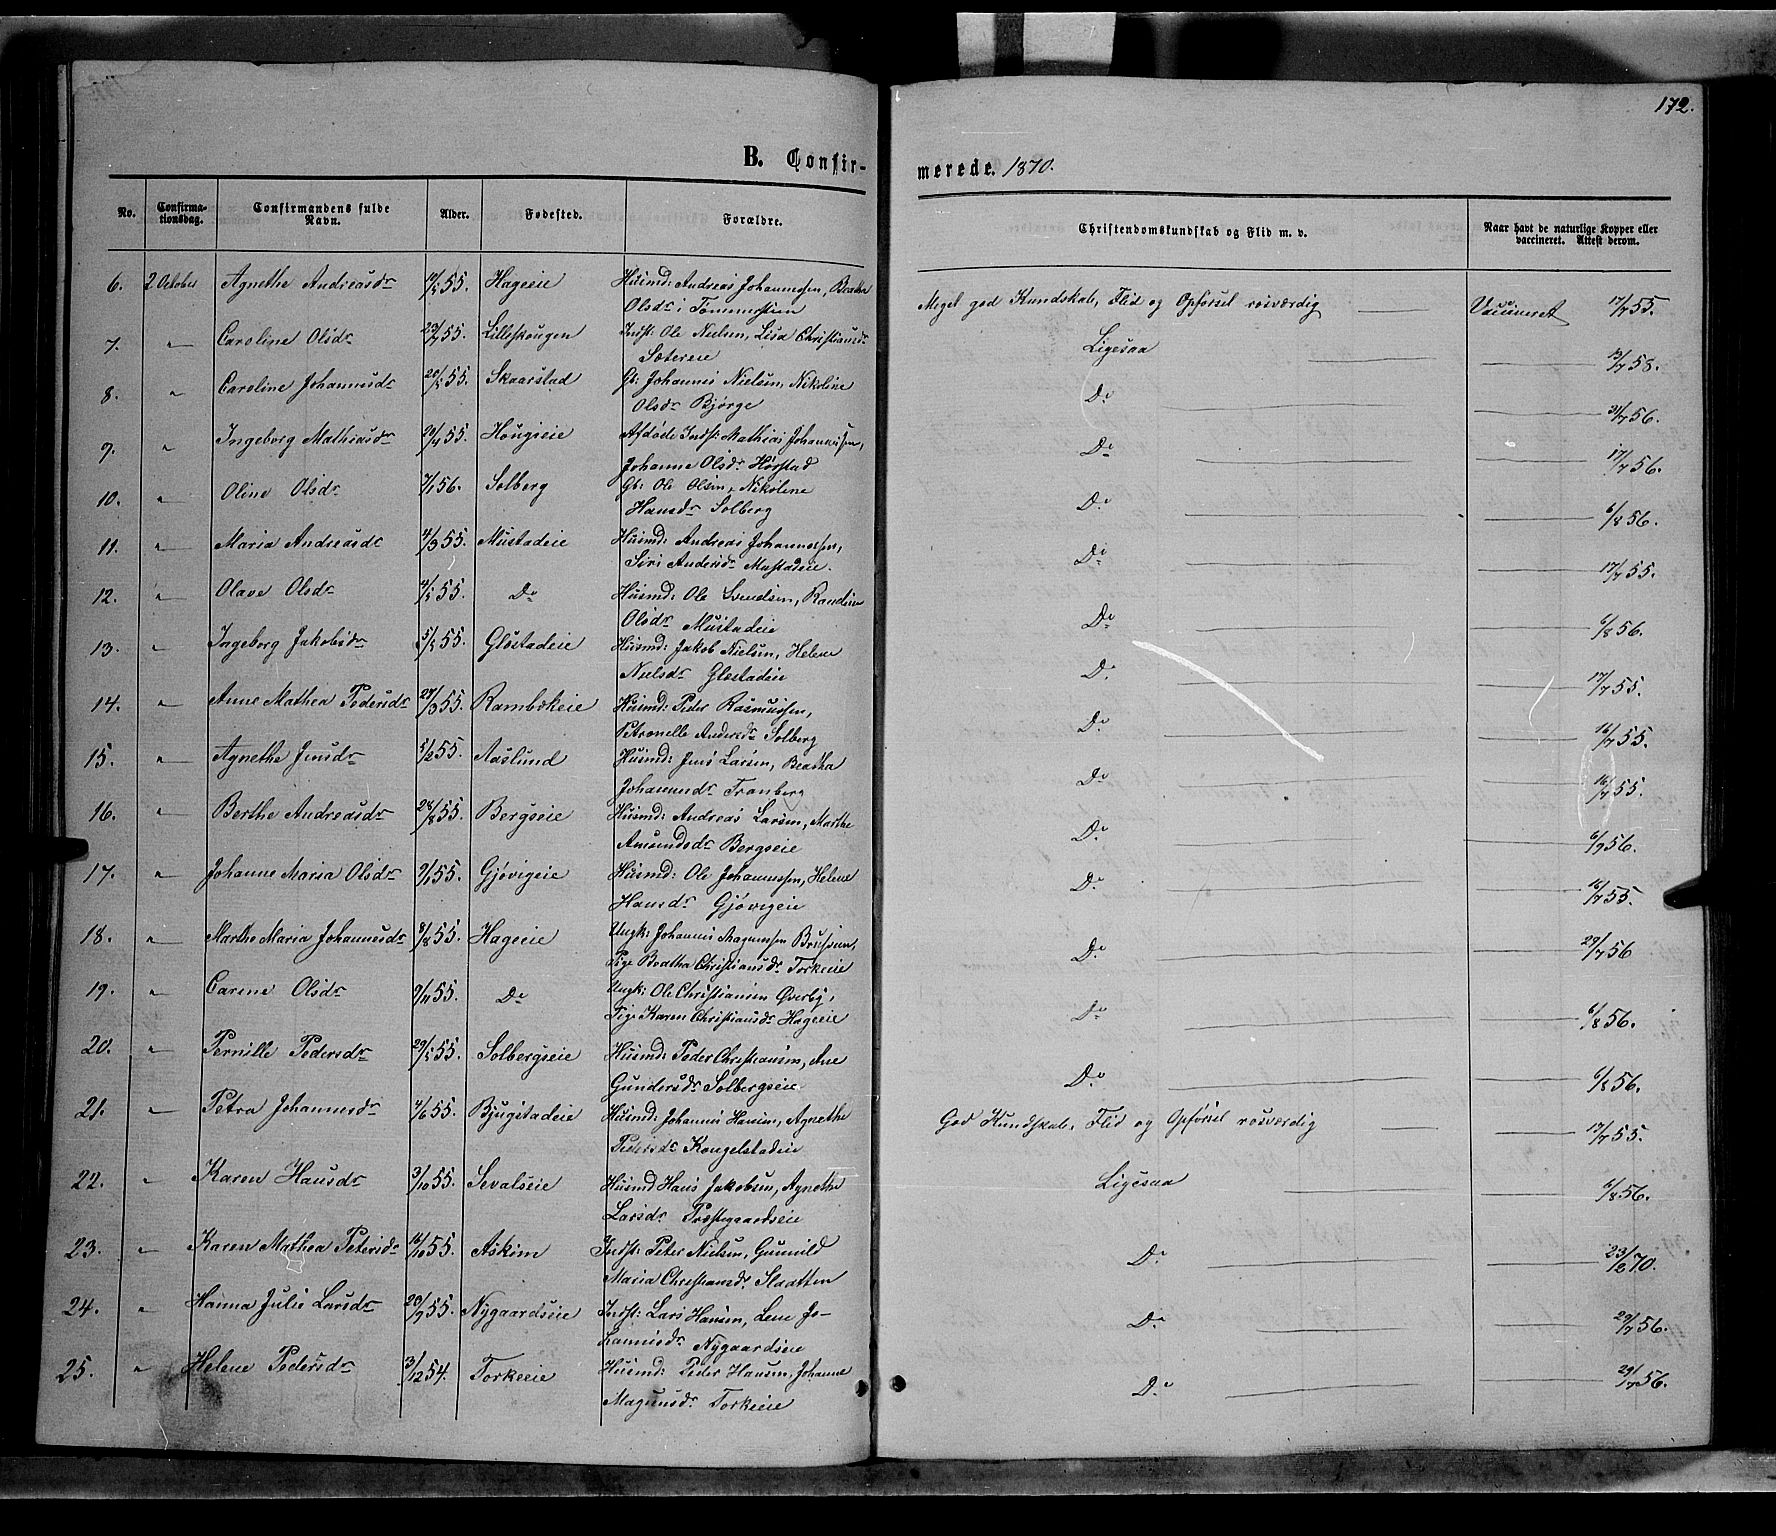 172.
B. Confir-
merede. 1870.
No.
Confirma-
tionsdag.
Confirmandens fulde
Navn.
Alder.
Fødested.
Forældre.
Christendomskundskab og Flid m. v.
Naar havt de naturlige Kopper eller
vaccineret. Attest derom.
6. 2 October Agnethe Andreasdr 55. Hageeie Husmd: Andreas Johannessen, Beatha
Olsdr: Tømmerstien
Meget god Kundskab, Flid og Opførsel rosværdig Vaccineret 17/7 55.
7. " Caroline Olsdr 55. Lilleskougen Indst: Ole Nielsen, Lisa Christiansdr
Sætereie
Ligesaa 58.
8. " Caroline Johannesdr 55. Skaarstad Gb: Johannes Nielsen, Nikoline
Olsdr Bjørge
Do 56.
9. " Ingeborg Mathiasdr 55. Hougseie Afdøde Indst: Mathias Johannessen,
Johanne Olsdr Hørstad
Do 17/7 56.
10. " Oline Olsdr 7/1 56. Solberg Gb: Ole Olsen, Nikoline
Hansdr Solberg
Do 6/8 56.
11. " Maria Andreasdr 4/3 55. Mustadeie Husmd: Andreas Johannessen,
Siri Andersdr Mustadeie.
Do 17/7 55.
12. " Olave Olsdr 55. Do Husmd: Ole Svendsen, Randine
Olsdr Mustadeie
Do 6/8 56.
13. " Ingeborg Jakobsdr 55. Gløstadeie Husmd: Jakob Nielsen, Helene
Nielsdr Gløstadeie
Do 17/7 55.
14. " Anne Mathea Pedersdr 55. Rambekeie Husmd: Peder Rasmussen,
Petronelle Andersdr Solberg
Do 16/7 55.
15. " Agnethe Jensdr 5/2 55. Aaslund Husmd: Jens Larsen, Beatha
Johannesdr Tranberg
Do 16/7 55.
16. " Berthe Andreasdr 28/8 55. Bergseie Husmd: Andreas Larsen, Marthe
Amundsdr Bergseie
Do 56.
17. " Johanne Maria Olsdr 55. Gjøvigeie Husmd: Ole Johannessen, Helene
Hansdr Gjøvigeie
Do 16/7 55.
18. " Marthe Maria Johannesdr 8/8 55. Hageeie Ungk: Johannes Magnussen
Pige Beatha Christiansdr Torkeeie
Do 29/7 56
19. " Carine Olsdr 9/11 55. Do Ungk: Ole Christiansen Øverby,
Pige Karen Christiansdr Hageeie
Do 6/8 56.
20. " Pernille Pedersdr 55. Solbergseie Husmd: Peder Christiansen, Ane
Gundersdr Solbergseie
Do 6/8 56.
21. " Petra Johannesdr 55. Bjugstadeie Husmd: Johannes Hansen, Agnethe
Pedersdr Kongelstadeie
God Kundskab, Flid og Opførsel rosværdig 17/7 55.
22. " Karen Hansdr 3/10 55. Sevalseie Husmd Hans Jakobsen, Agnethe
Larsdr Præstegaardseie
Ligesaa 6/8 56.
23. " Karen Mathea Petersdr 16/10 55. Askim Indst: Peter Nielsen, Gunild
Maria Christiansdr Slaatten
Do 70.
24. " Hanna Julie Larsdr 20/9 55. Nygaardseie Indst: Lars Hansen, Lene Jo-
hannesdr Nygaardseie
Do 29/7 56.
25. " Helene Pedersdr 3/12 54. Torkeeie Husmd: Peder Hansen, Johanne
Magnusdr Torkeeie
Do 29/7 56.